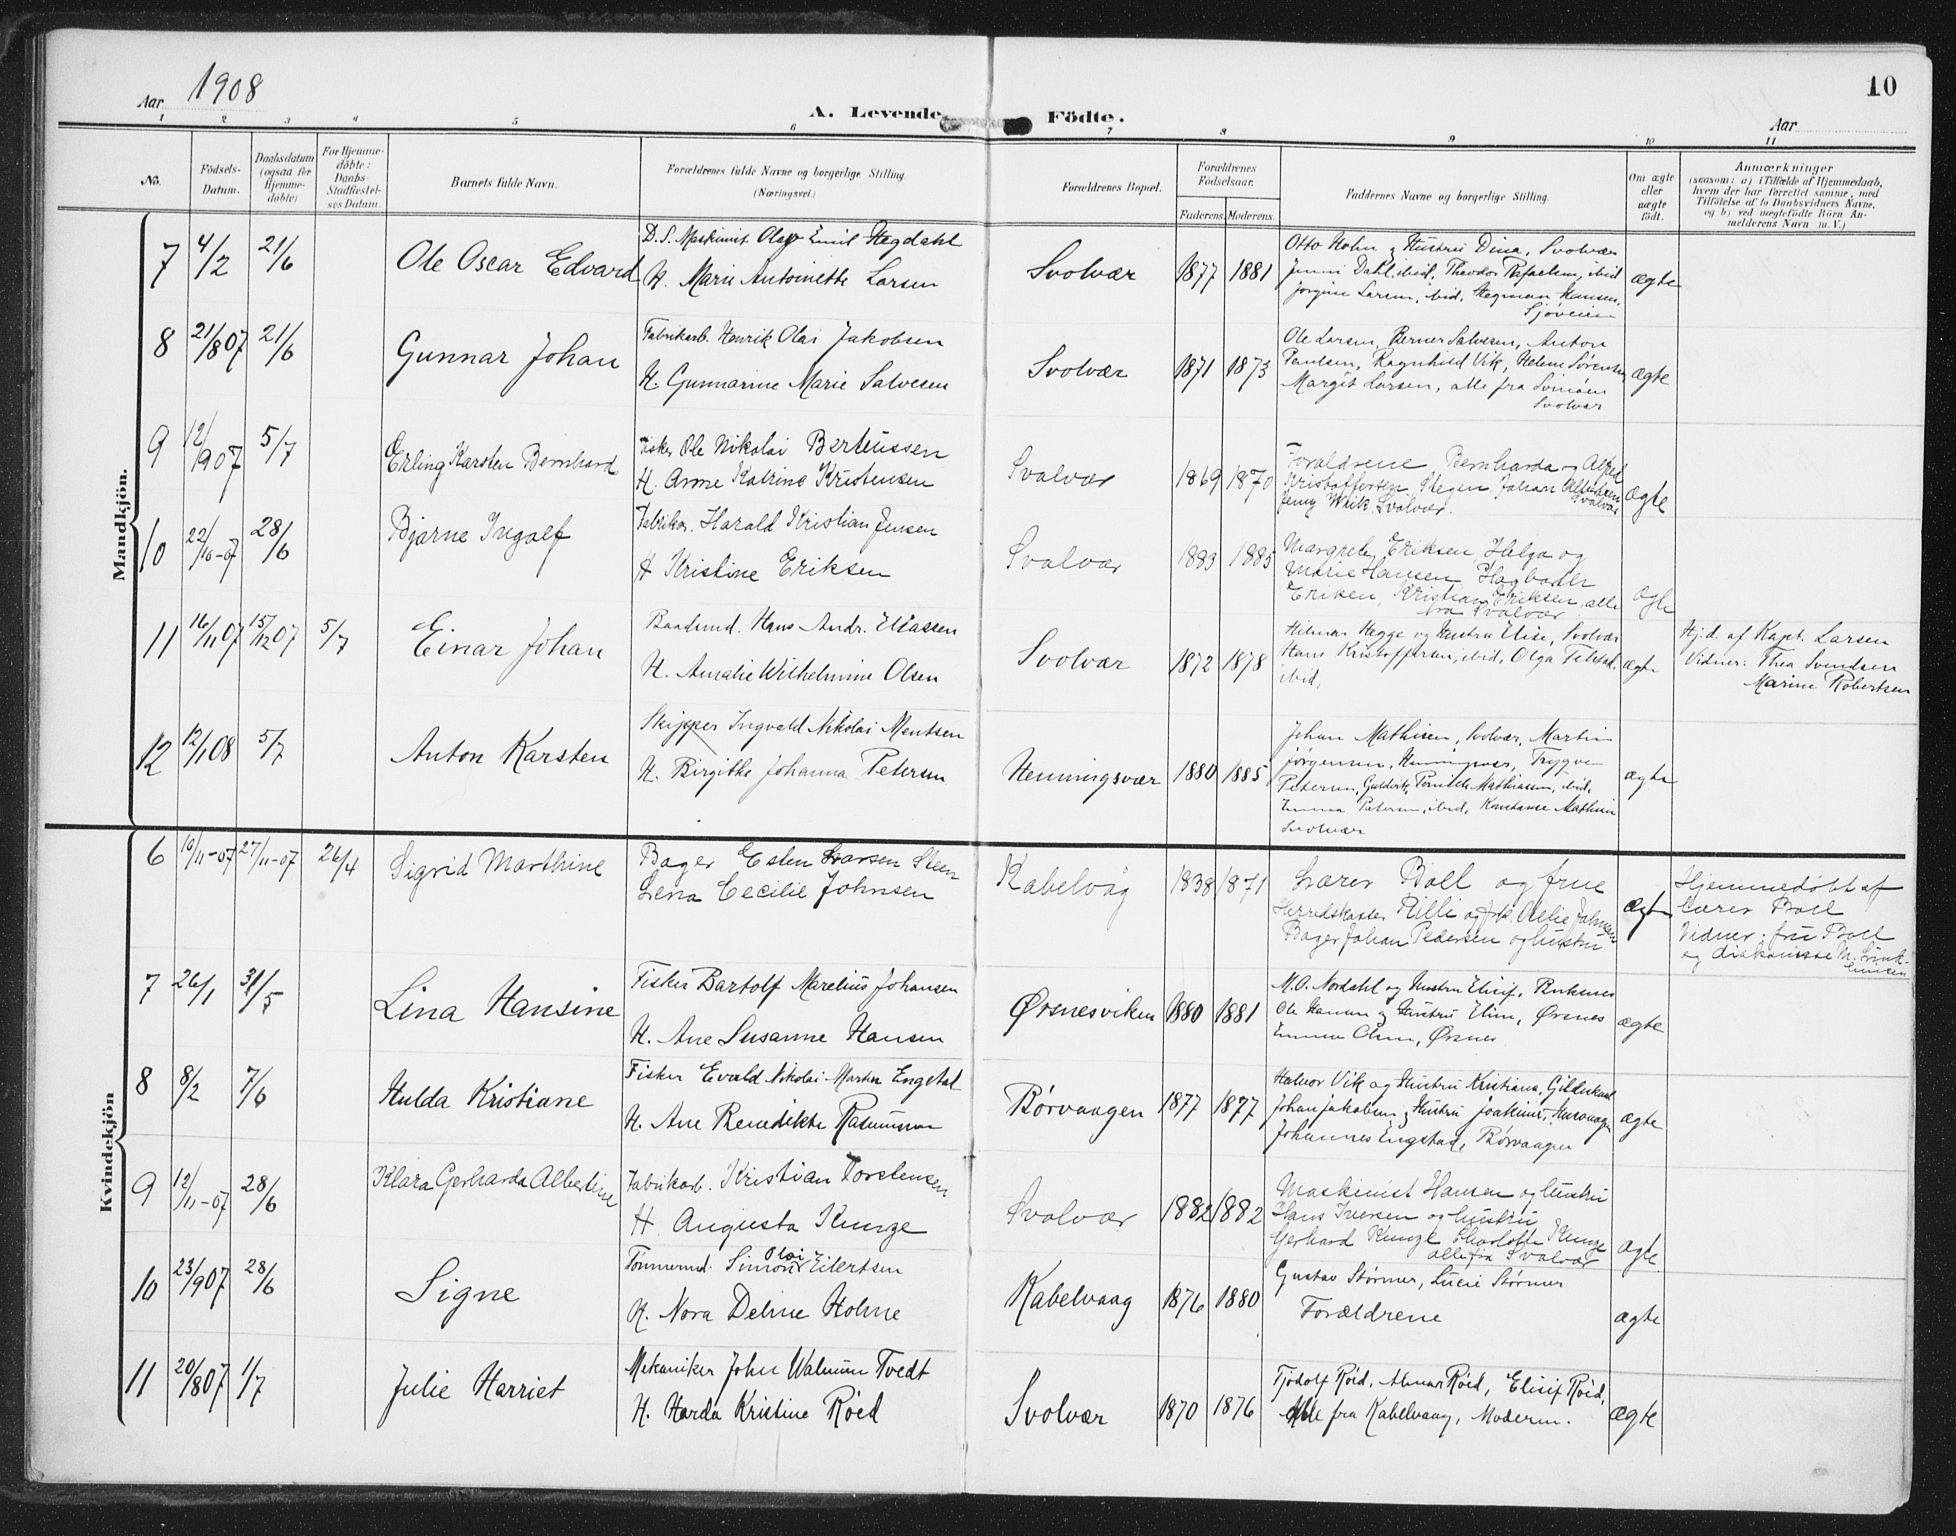 Aar 1908
A. Levende Födte.
10
Aar
1 2 3 4 5 6 7 8 9 10 11
No.
Födsels-Datum.
Daabsdatum (ogsaa for Hjemme-döbte)
For Hjemme-döbte: Daabs-Stadfæstel-ses Datum.
Barnets fulde Navn.
Forældrenes fulde Navne og borgerlige Stilling. (Næringsvei.)
Forældrenes Bopæl.
Forældrenes Födselsaar.
Faderens. Moderens.
Faddernes Navne og borgerlige Stilling.
Om ægte eller uægte födt.
Anmærkninger
(saasom: a) i Tilfælde af Hjemmedaab,
hvem der har forrettet samme, med
Tilföielse af to Daabsvidners Navne,
og b) ved uegtefödte Börn An-
melderens Navn m. V.)
Mandkjön.
7 4/2 21/6 Ole Oscar Edvard
D.S. Maskinist Olav Emil Hegdahl
H. Marie Antoinette Larsen
Svolvær 1877 1881
Otto Holm og Hustru Dina, Svolvær
Jenni Dahl, ibid, Theodor ibid
Jørgine Larsen, ibid, Hegman Hansen,
Sjøveien
ægte
8 21/8 07 21/6 Gunnar Johan
Fabrikarb. Henrik Olai Jakobsen
H. Gunnarine Marie Salvesen
Svolvær 1871 1873
Ole Larsen, Berner Salvesen, Anton
Paulsen, Ragnhild Vik, Helene Sørensen
Margit Larsen, alle fra Svinøen
Svolvær
ægte
9 12/9 07 5/7 Erling Karsten Bernhard
Fisker Ole Nikolai Berteussen
H. Anne Katrine Kristensen
Svolvær 1869 1870
Forældrene Bernharda og Alfred
Kristoffersen Skegen Johan
Jenny Svolvær.
ægte
10 22/10-07 28/6 Bjarne Ingolf
Fabrikar. Harald Kristian Jensen
H Kristine Eriksen
Svolvær 1883 1885
Margrete Eriksen, Helga og
Marie Hansen, Hagbarth
Eriksen, Kristian Eriksen, alle
fra Svolvær
ægte
11 16/11 07 15/12 07 5/7 Einar Johan
Baadsmd. Hans Andr. Eliassen
H. Amalie Wilhelmine Olsen
Svolvær 1872 1878
Hilmar Hegge og Hustru Elise, Svolvær
Hans Kristoffersen, ibid, Olga
ibid,
ægte
Hj.d. af Kapt. Larsen
Vidner: Thea Svendsen
Marine Robertsen
12 12/1 08 5/7 Anton Karsten
Skipper Ingvald Nikolai Mentsen
H. Birgithe Johanna Petersen
Henningsvær 1880 1885
Johan Mathisen, Svolvær, Martin
Jørgensen, Henningsvær, Trygve
Petersen, Mathiassen, ibid,
Emma Petersen, ibid, Konstanse Mathisen
Svolvær
ægte
Kvindekjön
6 16/11-07 27/11-07 26/4 Sigrid Marthine
Bager Esten Larsen Steen
Lena Cecilie Johnsen
Kabelvåg 1838 1871
Lærer Boll og frue
Herredskasser og frk. Johnsen
Bager Johan Pedersen og hustru
Ægte
Hjemmedöbt af
lærer Boll
Vidner: fru Boll
og diakonisse M.
7 26/1 31/5 Lina Hansine
Fisker Bartolf Marelius Johansen
H. Ane Susanne Hansen
Ørsnesviken 1880 1881
N.O. Nordahl og Hustru Elisif,
Ole Hansen og Hustru Elen, Ørsnes
Emma Olsen, Ørsnes
ægte
8 8/2 7/6 Hulda Kristiane
Fisker Evald Nikolai Martin Engstad
H. Ane Benedikte Rasmussen
Børvaagen 1877 1877
Halvor Vik og Hustru Kristiana,
Johan Jakobsen og Hustru Joakime,
Johannes Engstad, Børvaagen
ægte
9 12/11-07 28/6 Klara Gerharda Albertine
Fabrikarb. Kristian Torstensen
H. Augusta Kunze
Svolvær 1882 1882
Maskinist Hansen og hustru
Hans Iversen og hustru
Gerhard Kunze Charlotte Kunze
alle fra Svolvær
ægte
10 23/9 07 28/6 Signe
Tømmermd. Simon Olai Eilertsen
H. Nora Deline Holme
Kabelvaag 1876 1880
Gustav Størmer, Lucie Størmer
Forældrene
ægte
11 20/8 07 1/7 Julie Harriet
Mekaniker John Walmum Tvedt
H. Harda Kristine Röed
Svolvær 1870 1876
Tjodolf Röed, Röed, Elisif Röed,
Alle fra Kabelvaag, Moderen.
ægte